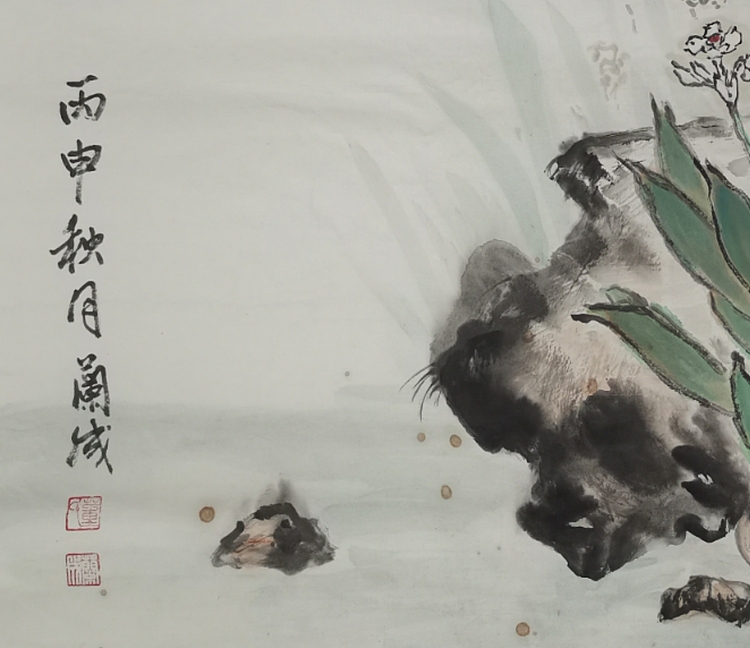 丙申秋月蘭成